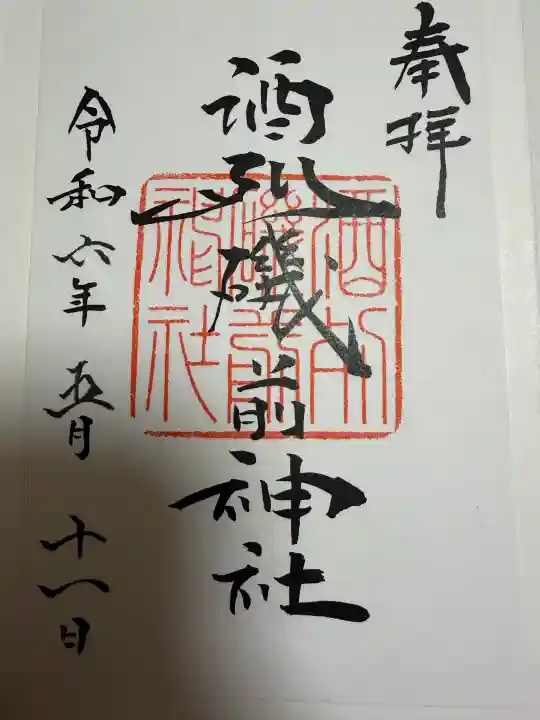 奉拝
酒列磯前神社
令和六年五月十一日
酒列
磯前
神社